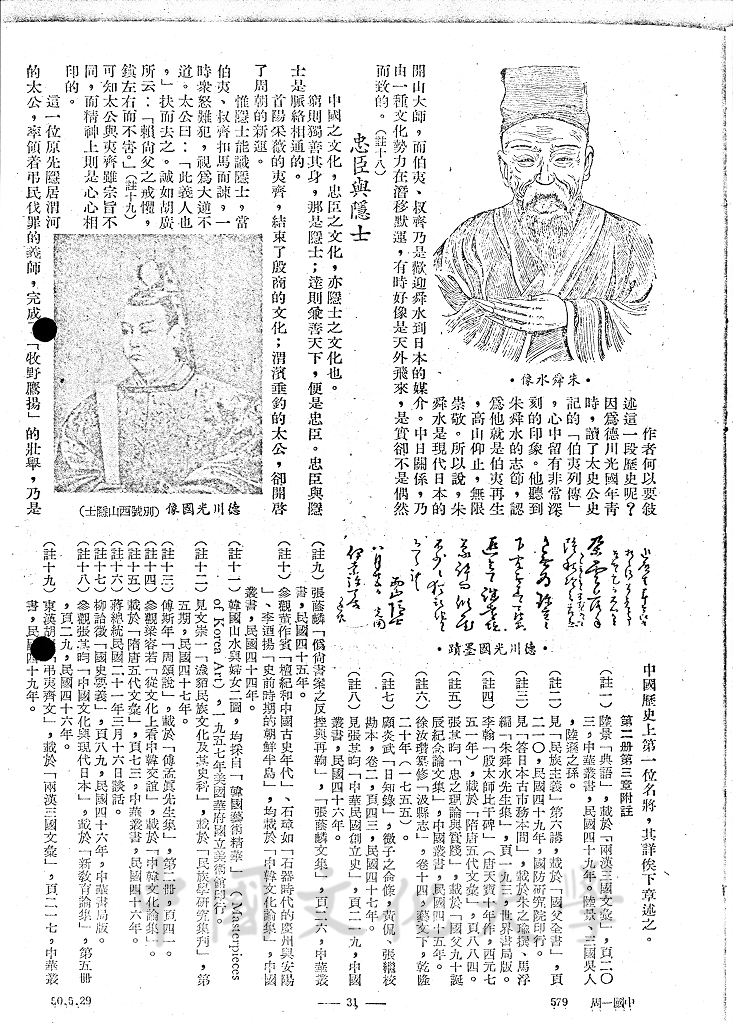 •朱舜水像•
作者何以要敍
述這一段歷史呢？
因爲德川光國年靑
時，讀了太史公史
記的「伯夷列傳」
，心中留有非常深
刻的印象。他聽到
朱舜水的志節，認
爲他就是伯夷再生
，高山仰止，無限
崇敬。所以說，朱
舜水是現代日本的
開山大師，而伯夷、叔齊乃是歡迎舜水到日本的媒介。中日關係，乃
由一種文化勢力在潛移默運，有時好像是天外飛來，是實卻不是偶然
而致的。（註十八）
忠臣與隱士
中國之文化，忠臣之文化，亦隱士之文化也。
窮則獨善其身，那是隱士；達則兼善天下，便是忠臣。忠臣與隱
士是脈絡相通的。
首陽采薇的夷齊，結束了殷商的文化；渭濱垂釣的太公，卻開啓
了周朝的新運。
惟隱士能識隱士，當
伯夷、叔齊扣馬而諫，一
時衆怒難犯，視爲大逆不
道。太公曰：「此義人也
」，扶而去之。誠如胡廣
所云：「賴尙父之戒懼，
鎮左右而不害。」（註十九）
可知太公與夷齊雖宗旨不
同，而精神上則是心心相
印的。
這一位原先隱居渭河
的太公，率領着弔民伐罪的義師，完成了「牧野鷹揚」的壯舉，乃是
德川光國像（別號西山隱士）
中國歷史上第一位名將，其詳俟下章述之。
•德川光國墨蹟•
第二册第三章附註
（註一）陸景「典語」，載於「兩漢三國文彙」，頁二〇
三，中華叢書，民國四十九年。陸景、三國吳人
，陸遜之孫。
（註二）見「民族主義」第六講，載於「國父全書」，頁
二一〇，民國四十九年，國防研究院印行。
（註三）見「答日本古市務本問」，載於朱之瑜撰、馬浮
編「朱舜水先生集」，頁一九三，世界書局版。
（註四）李翰「殷太師比干碑」（唐天寶十年作，西元七
五一年），載於「隋唐五代文彙」，頁八八四。
（註五）張其昀「忠之理論與實踐」，載於「國父九十誕
辰紀念論文集」，中國叢書，民國四十五年。
（註六）徐汝瓚纂修「汲縣志」，卷十四，藝文下，乾隆
二十年（一七五五）。
（註七）顧炎武「日知錄」，微子之命條，黃侃、張繼校
勘本，卷二，頁四三，民國四十七年。
（註八）見張其昀「中華民國創立史」，頁二一九，中國
叢書，民國四十六年。
（註九）張蔭麟「僞尙書案之反控與再鞫」，「張蔭麟文集」，頁二六，中華叢
書，民國四十五年。
（註十）參觀董作賓「檀紀和中國古史年代」、石璋如「石器時代的慶州與安陽
」、李迺揚「史前時期的朝鮮半島」，均載於「中韓文化論集」，中國
叢書，民國四十四年。
（註十一）韓國山水與婦女二圖，均採自「韓國藝術精華」（Masterpieces
of Korea Art），一九五七年美國華府國立美術館印行。
（註十二）見文崇一「濊貊民族文化及其史料」，載於「民族學研究集刋」，第
五期，民國四十七年。
（註十三）傅斯年「周頌說」，載於「傅孟眞先生集」，第二册，頁四一。
（註十四）參觀梁容若「從文化上看中韓交誼」，載於「中韓文化論集」。
（註十五）載於「隋唐五代文彙」，頁七三，中華叢書，民國四十六年。
（註十六）蔣總統民國二十一年三月十六日談話。
（註十七）柳詒徵「國史要義」，頁八九，民國四十六年，中華書局版。
（註十八）參觀張其昀「中國文化與現代日本」，載於「新敎育論集」，第五册
，頁二九，民國四十六年。
（註十九）東漢胡廣「弔夷齊文」，載於「兩漢三國文彙」，頁二一七，中華叢
書，民國四十九年。
中國一周 579
— 31 —
50.5.29
中國文化大學